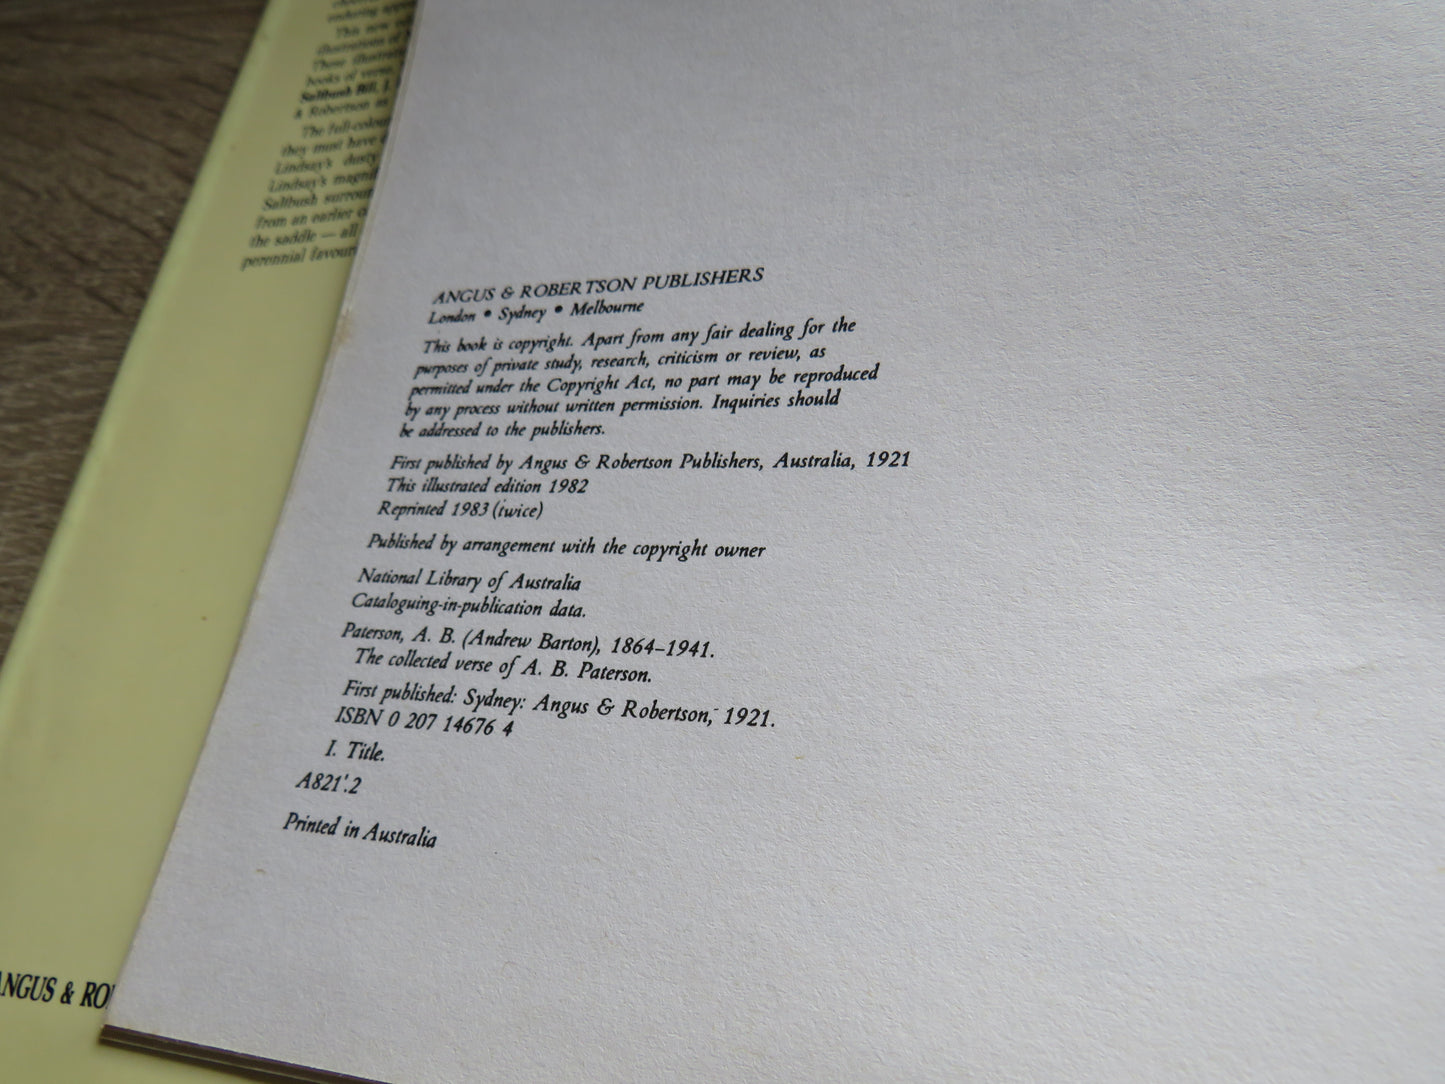 enduring
This new
illustrations of
These
books of verse,
Saltbush Bill, J.
& Robertson in
The full-colour
they must have
Lindsay's dusty
Lindsay's
Saltbush
from an earlier
the saddle — all
perennial
ANGUS & ROBERTSON PUBLISHERS
London • Sydney • Melbourne
This book is copyright. Apart from any fair dealing for the
purposes of private study, research, criticism or review, as
permitted under the Copyright Act, no part may be reproduced
by any process without written permission. Inquiries should
be addressed to the publishers.
First published by Angus & Robertson Publishers, Australia, 1921
This illustrated edition 1982
Reprinted 1983 (twice)
Published by arrangement with the copyright owner
National Library of Australia
Cataloguing-in-publication data.
Paterson, A. B. (Andrew Barton), 1864–1941.
The collected verse of A. B. Paterson.
First published: Sydney: Angus & Robertson, 1921.
ISBN 0 207 14676 4
I. Title.
A821'.2
Printed in Australia
ANGUS & RO